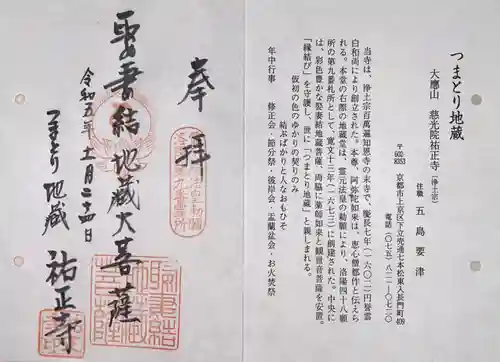 奉拝
聖妻結地蔵大菩薩
令和五年十一月二十四日
つまとり地蔵 祐正寺
つまとり地蔵
大應山 慈光院祐正寺(浄土宗)
住職 五島要津
〒602 8353 京都市上京区下立売通七本松東入長門町409
電話(〇七五)八二一-〇七二〇
当寺は、浄土宗百萬遍知恩寺の末寺で、慶長七年(一六〇二)円誉雲
白和尚により創立された。本尊、阿弥陀如来は、恵心僧都作と伝えら
れる。本堂の右際の地蔵堂は、霊元法皇の勅願により、洛陽四十八願
所の第九番札所として、寛文十三年(一六七三)に創建された。中央に
は、彩色豊かな娶妻結地蔵菩薩、両脇に薬師如来と観世音菩薩を安置。
「縁結び」を守護し、世に「つまとり地蔵」と親しまれる。
仮初の色のゆかりの契りのみ
結ぶばかりと人なおもひそ
年中行事 修正会・節分祭・彼岸会・盂蘭盆会・お火焚祭